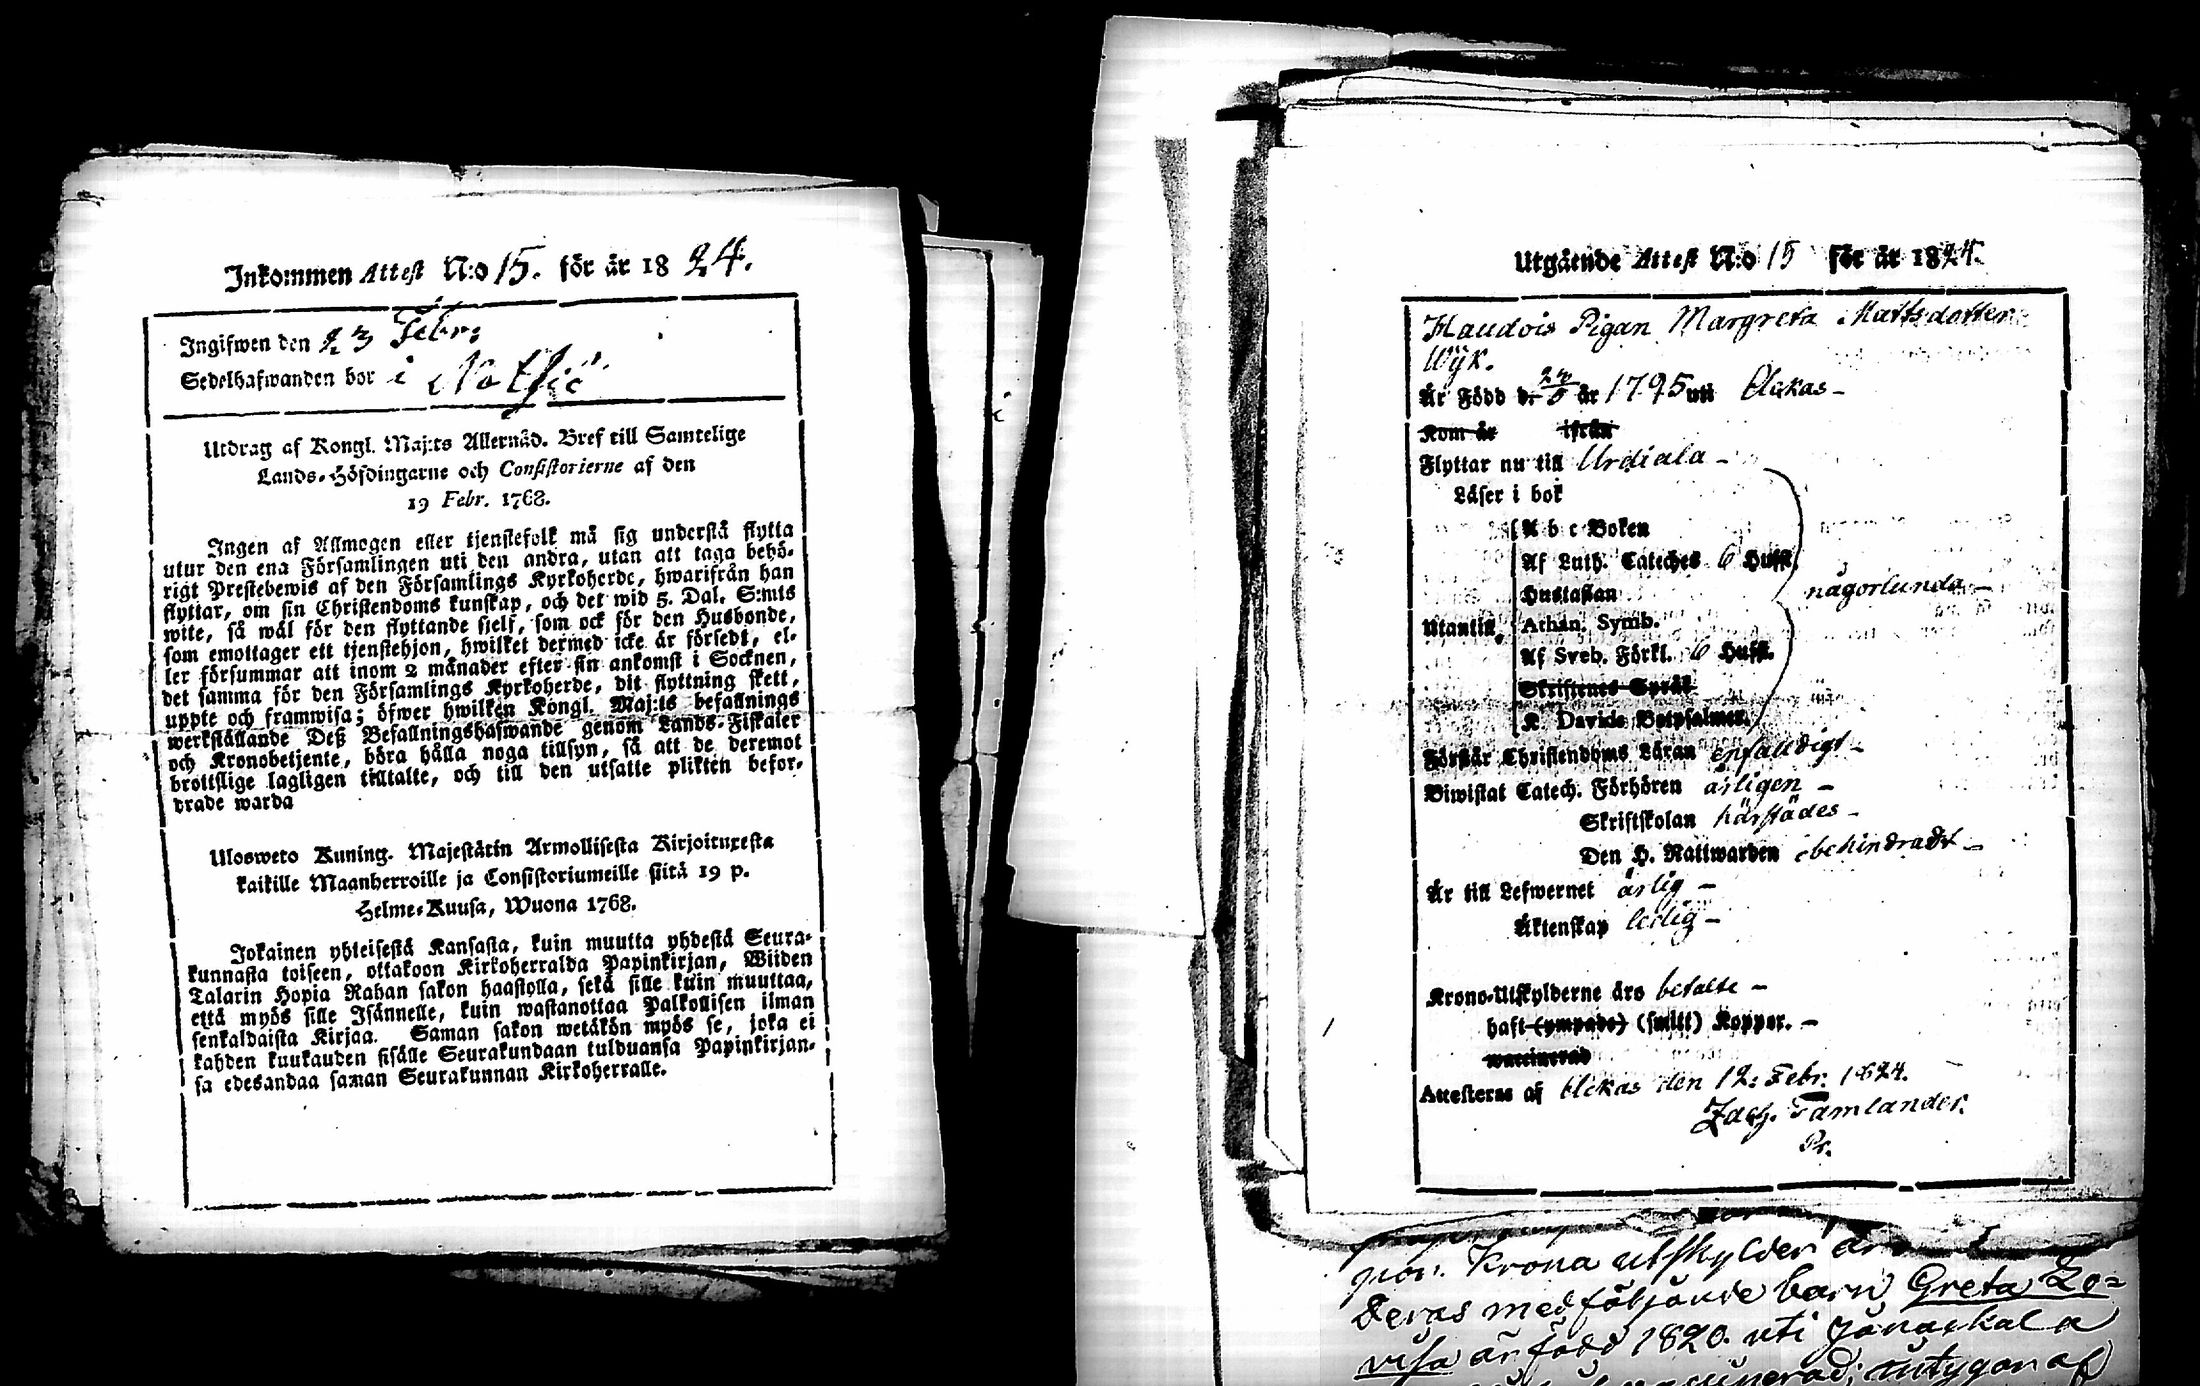 Inkommen Attest N:o 15. för år 18 24.
Ingifwen den 23 Febr:
Sedelhafwanden bor i
Utdrag af Kongl. Maj:ts Allernåd. Bref till Samtelige
Lands-Höfdingarne och Consistorierne af den
19 Febr. 1768.
Ingen af Allmogen eller tjenstefolk må sig understå flytta
utur den ena Församlingen uti den andra, utan att taga behö-
rigt Prestebewis af den Församlings Kyrkoherde, hwarifrån han
flyttar, om sin Christendoms kunskap, och det wid 5. Dal. S:mts
wite, så wäl för den flyttande sjelf, som ock för den Husbonde,
som emottager ett tjenstehjon, hwilket dermed icke är försedt, el-
ler försummar att inom 2 månader efter sin ankomst i Socknen,
det samma för den Församlings Kyrkoherde, dit flyttning skett,
uppte och framwisa; öfwer hwilken Kongl. Maj:ts befallnings
werkställande Deß Befallningshafwande genom Lands-Fiskaler
och Kronobetjente, böra hålla noga tillsyn, så att de deremot
brottslige lagligen tilltalte, och till den utsatte plikten befor-
drade warda
Ulosweto Kuning. Majestätin Armollisesta Kirjoituxesta
kaikille Maanherroille ja Consistoriumeille siitä 19 p.
Helme-Kuusa, Wuona 1768.
Jokainen yhteisestä Kansasta, kuin muutta yhdestä Seura-
kunnasta toiseen, ottakoon Kirkoherralda Papinkirjan, Wiiden
Talarin Hopia Rahan sakon haastolla, sekä sille kuin muuttaa,
että myös sille Isännelle, kuin wastanottaa Palkollisen ilman
senkaldaista Kirjaa. Saman sakon wetäkön myös se, joka ei
kahden kuukauden sisälle Seurakundaan tulduansa Papinkirjan-
sa edesandaa saman Seurakunnan Kirkoherralle.
Utgående Attest N:o 15 för år 1824.
Pigan Margreta Mattsdotter
Wijk.
Är Född d. år 1795 uti
Kom år ifrån
Flyttar nu till Urdiala –
Läser i bok
A b c Boken
Af Luth. Cateches 6 Hufst.
Hustaflan någorlunda –
Utantill, Athan. Symb.
Af Sveb. Förkl. 6 Hufst.
Skriftenes Språk
K. Davids Botpsalmer.
Förstår Christendoms Läran enfaldigt –
Biwistat Catech. Förhören årligen –
Skriftskolan härstädes –
Den H. Nattwarden obehindradt –
Är till Lefwernet ärlig –
Äktenskap ledig –
Krono-Utskylderne äro betalte –
haft (ympade) (smitt) Koppor. –
waccinerad
Attesteras af den 12: Febr. 1824.
Zach. Tamlander.
Pr.
Krona utskylder är
Deras medföljande barn Greta Lo=
visa är född 1820. uti Janakkala